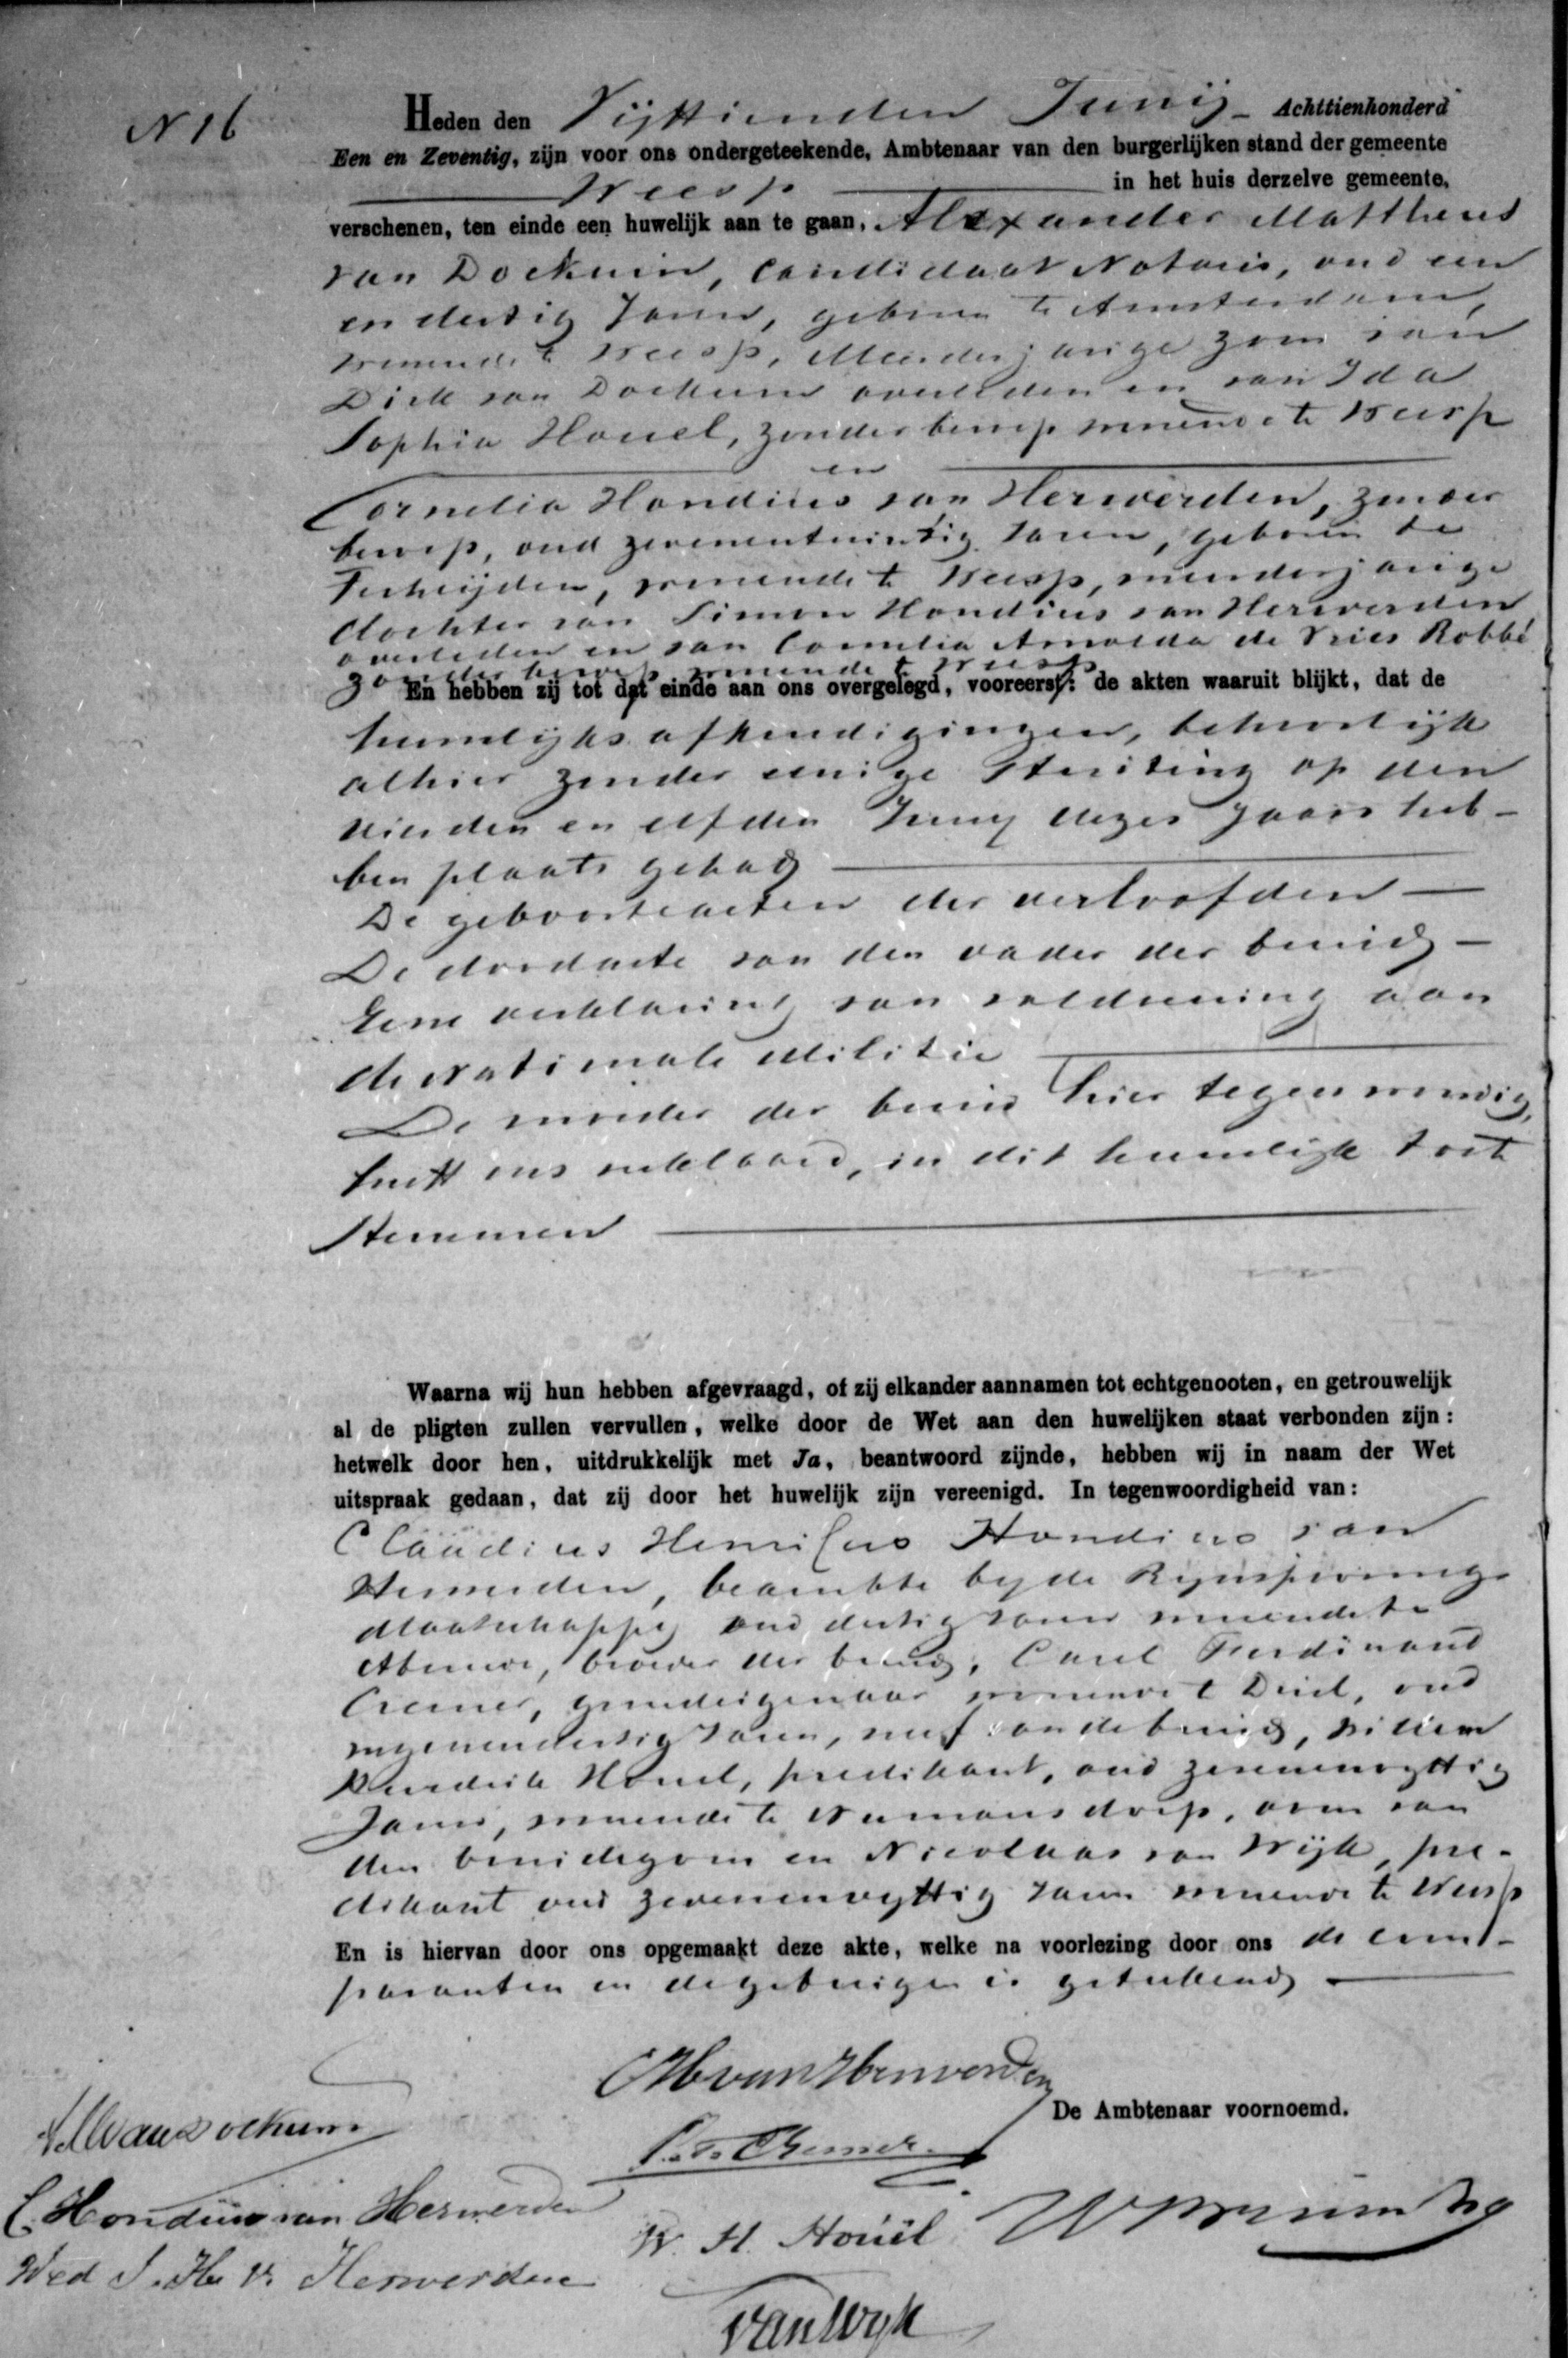 N 16
Heden den Vijftienden Junij - Achttienhonderd
Een en Zeventig, zijn voor ons ondergeteekende, Ambtenaar van den burgerlijken stand der gemeente
Weesp in het huis derzelve gemeente,
verschenen, ten einde een huwelijk aan te gaan, Alexander Mattheus
van Dockum, Candidaat Notaris, oud een
en dertig Jaren, geboren te Amsterdam,
wonende te Weesp, Meerderjarige zoon van
Dirk van Dockum overleden en van Ida
Sophia Houel, zonder beroep wonende te Weesp
en
Cornelia Hondius van Herwerden, zonder
beroep, oud zevenentwintig Jaren, geboren te
Terheijden, wonende te Weesp, meerderjarige
dochter van Simon Hondius van Herwerden
overleden en van Cornelia Arnolda de Vries Robbé
zonder beroep wonende te Weesp
En hebben zij tot dat einde aan ons overgelegd, vooreerst: de akten waaruit blijkt, dat de
huwelijks afkondigingen, behoorlijk
alhier zonder eenige stuiting op den
vierden en elfden Junij dezes Jaars heb-
ben plaats gehad
De geboorteacten der verloofden
De doodacte van den vader der bruid -
Eene verklaring van voldoening aan
de Nationale Militie
De moeder der bruid hier tegenwoordig,
heeft ons verklaard, in dit huwelijk toe te
stemmen
Waarna wij hun hebben afgevraagd, of zij elkander aannamen tot echtgenooten, en getrouwelijk
al de pligten zullen vervullen, welke door de Wet aan den huwelijken staat verbonden zijn:
hetwelk door hen, uitdrukkelijk met Ja, beantwoord zijnde, hebben wij in naam der Wet
uitspraak gedaan, dat zij door het huwelijk zijn vereenigd. In tegenwoordigheid van:
Claudius Henricus Hondius van
Herwerden, beambte bij de Rijnspoorweg
Maatschappij oud dertig Jaren wonende te
Abcoude, broeder der bruid, Carel Ferdinand
Cremer, grondeigenaar wonende te Deil, oud
negenendertig Jaren, neef van de bruid, Willem
Hendrik Houel, predikant, oud zevenenvijftig
Jaren, wonende te Numansdorp, oom van
den bruidegom en Nicolaas van Wijk, pre-
dikant oud zevenenvijftig Jaren wonende te Weesp
En is hiervan door ons opgemaakt deze akte, welke na voorlezing door ons de com-
paranten en de getuigen is geteekend
CHH van Herwerden
De Ambtenaar voornoemd.
AM van Dockum
C. F. Cremer
C. Hondius van Herwerden
W. H. Houël
Wed S. H. v. Herwerden
van Wyk